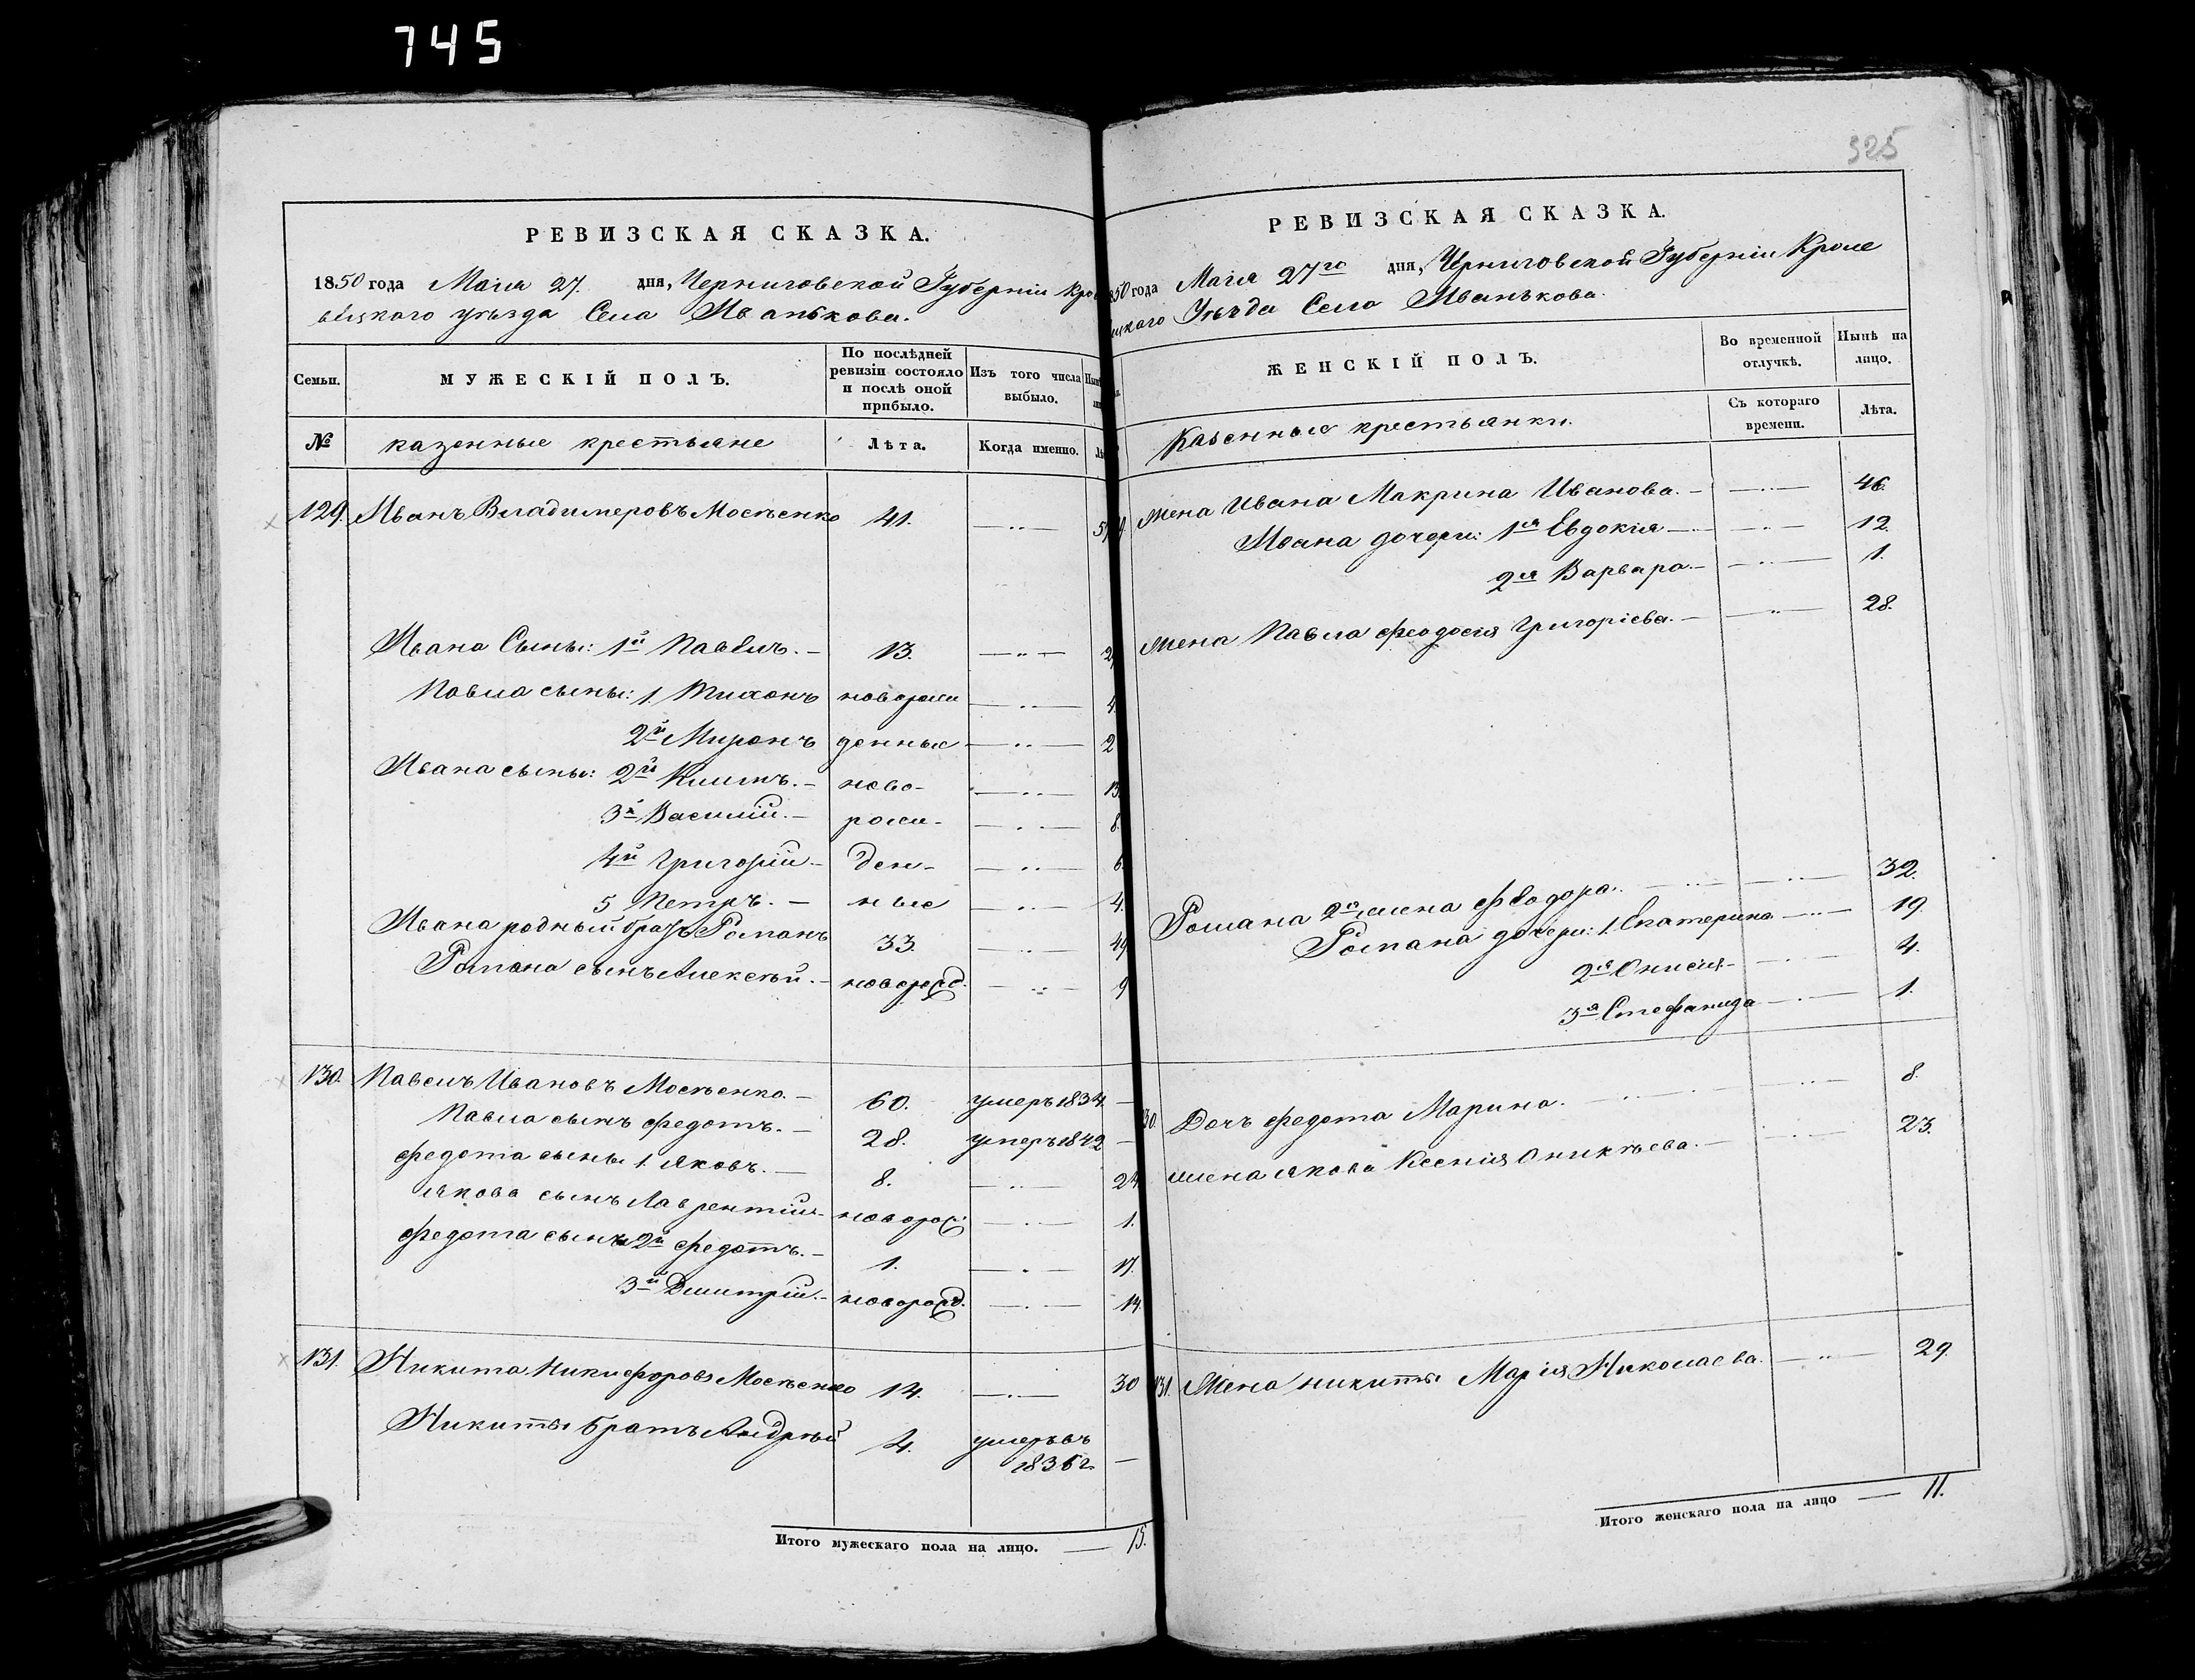 745
325
РЕВИЗСКАЯ СКАЗКА.
1850 года Маія 27. дня, Черниговской Губерніи Кро
вецкого уѣзда Села Иванькова.
Семьи.
МУЖЕСКІЙ ПОЛЪ.
По послѣдней ревизіи состояло и послѣ оной прибыло.
Изъ того числа выбыло.
№
казенные крестьяне
Лѣта.
Когда именно.
129. Иванъ Владимеровъ Мосѣенко 41.
Ивана Сыны: 1й Павелъ. 13.
Павла сыны: 1. Тихонъ новорож 4.
2й Миронъ денные 2
Ивана сыны: 2й Климъ. ново- 13.
3й Василій. рож- 8.
4й Григорій ден- 6.
5 Петръ. ные 4.
Ивана родный братъ Романъ 33. 49
Романа сынъ Алексѣй. новорожд. 9
130. Павелъ Ивановъ Мосѣенко. 60. умеръ 1834.
Павла сынъ Федотъ. 28. умеръ 1842
Федота сыны 1. Яковъ. 8. 24
Якова сынъ Лаврентій новорож: 1.
Федота сынъ 2й Федотъ. 1. 17.
3й Дмитрій. новорожд. 14.
131. Никита Никифоровъ Мосѣенко 14. 30
Никиты братъ Андрѣй 4. умеръ въ
1836 г.
Итого мужескаго пола на лицо. 15.
РЕВИЗСКАЯ СКАЗКА.
850 года Маія 27го дня, Черниговской Губерніи Кроле
ецкого Уѣзда Села Иванькова.
ЖЕНСКІЙ ПОЛЪ.
Во временной отлучкѣ.
Нынѣ на лицо.
Казенные крестьянки.
Съ котораго времени.
Лѣта.
Жена Ивана Макрина Иванова. 46.
Ивана дочери: 1я Евдокія 12.
2я Варвара. 1.
Жена Павла Феодосія Григоріева. 28.
Романа 2я жена Феодора. 32.
Романа дочери: 1. Екатерина 19.
2я Онисія 4.
3я Стефанида 1.
30. Дочъ Федота Марина. 8.
жена Якова Ксенія Оникѣева. 23.
131. Жена Никиты Марія Николаева. 29.
Итого женскаго пола на лицо 11.